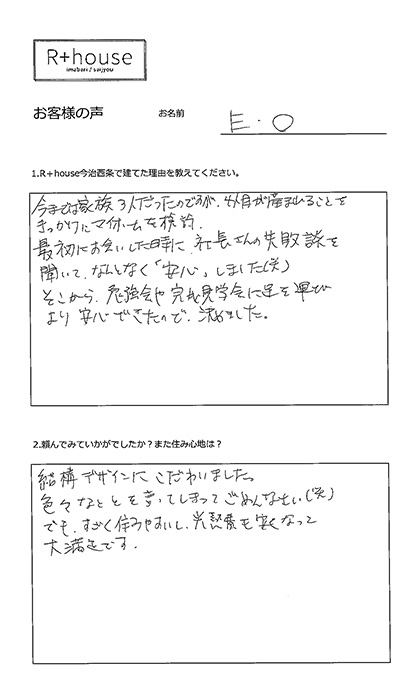 R+house
imabari / saijyou
お客様の声
お名前
E・O
1.R+house今治西条で建てた理由を教えてください。
今までは家族3人だったのですが、4人目が産まれることを
きっかけにマイホームを検討.
最初にお会いした時に、社長さんの失敗談を
聞いて、なんとなく「安心」しました(笑)
そこから、勉強会や完成見学会に足を運び
より安心できたので、決めました。
2.頼んでみていかがでしたか？また住み心地は？
結構デザインにこだわりました。
色々なことを言ってしまってごめんなさい(笑)
でも、すごく住みやすいし、光熱費も安くなって
大満足です.